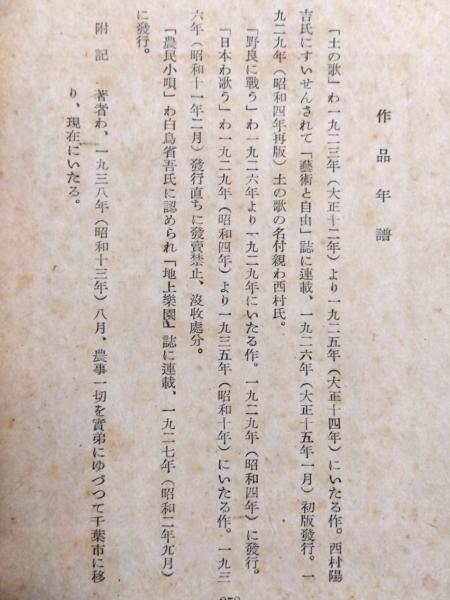 作品年譜
「土の歌」わ一九二三年(大正十二年)より一九二五年(大正十四年)にいたる作。西村陽
吉氏にすいせんされて「藝術と自由」誌に連載、一九二六年(大正十五年一月)初版發行。一
九二九年(昭和四年再版)土の歌の名付親わ西村氏。
「野良に戰う」わ一九二六年より一九二九年にいたる作。一九二九年(昭和四年)に發行。
「日本わ歌う」わ一九二九年(昭和四年)より一九三五年(昭和十年)にいたる作。一九三
六年(昭和十一年二月)發行直ちに發賣禁止、沒收處分。
「農民小唄」わ白鳥省吾氏に認められ「地上樂園」誌に連載、一九二七年(昭和二年九月)
に發行。
附記 著者わ、一九三八年(昭和十三年)八月、農事一切を實弟にゆづつて千葉市に移
り、現在にいたる。